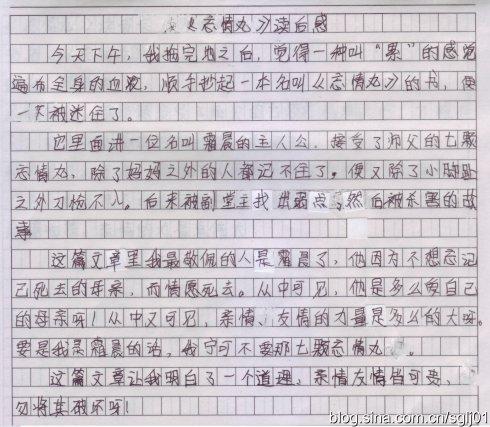 《忘情丸》读后感
今天下午，我拖完地之后，觉得一种叫“累”的感觉
遍布全身的血液，顺手抄起一本名叫《忘情丸》的书，便
一下被迷住了。
它里面讲一位名叫霜晨的主人公，接受了师父的七颗
忘情丸，除了妈妈之外的人都记不住了。便又除了小肚脐
之外刀枪不入。后来被副堂主找出弱点，然后被杀害的故
事
这篇文章里我最敬佩的人是霜晨了，他因为不想忘记
己死去的母亲，而情愿死去。从中可见，他是多么爱自己
的母亲呀！从中又可见，亲情、友情的力量是多么的大呀。
要是我是霜晨的话，我宁可不要那七颗忘情丸。
这篇文章让我明白了一个道理，亲情友情皆可贵，
勿将其破坏呀！
blog.sina.com.cn/sglj01